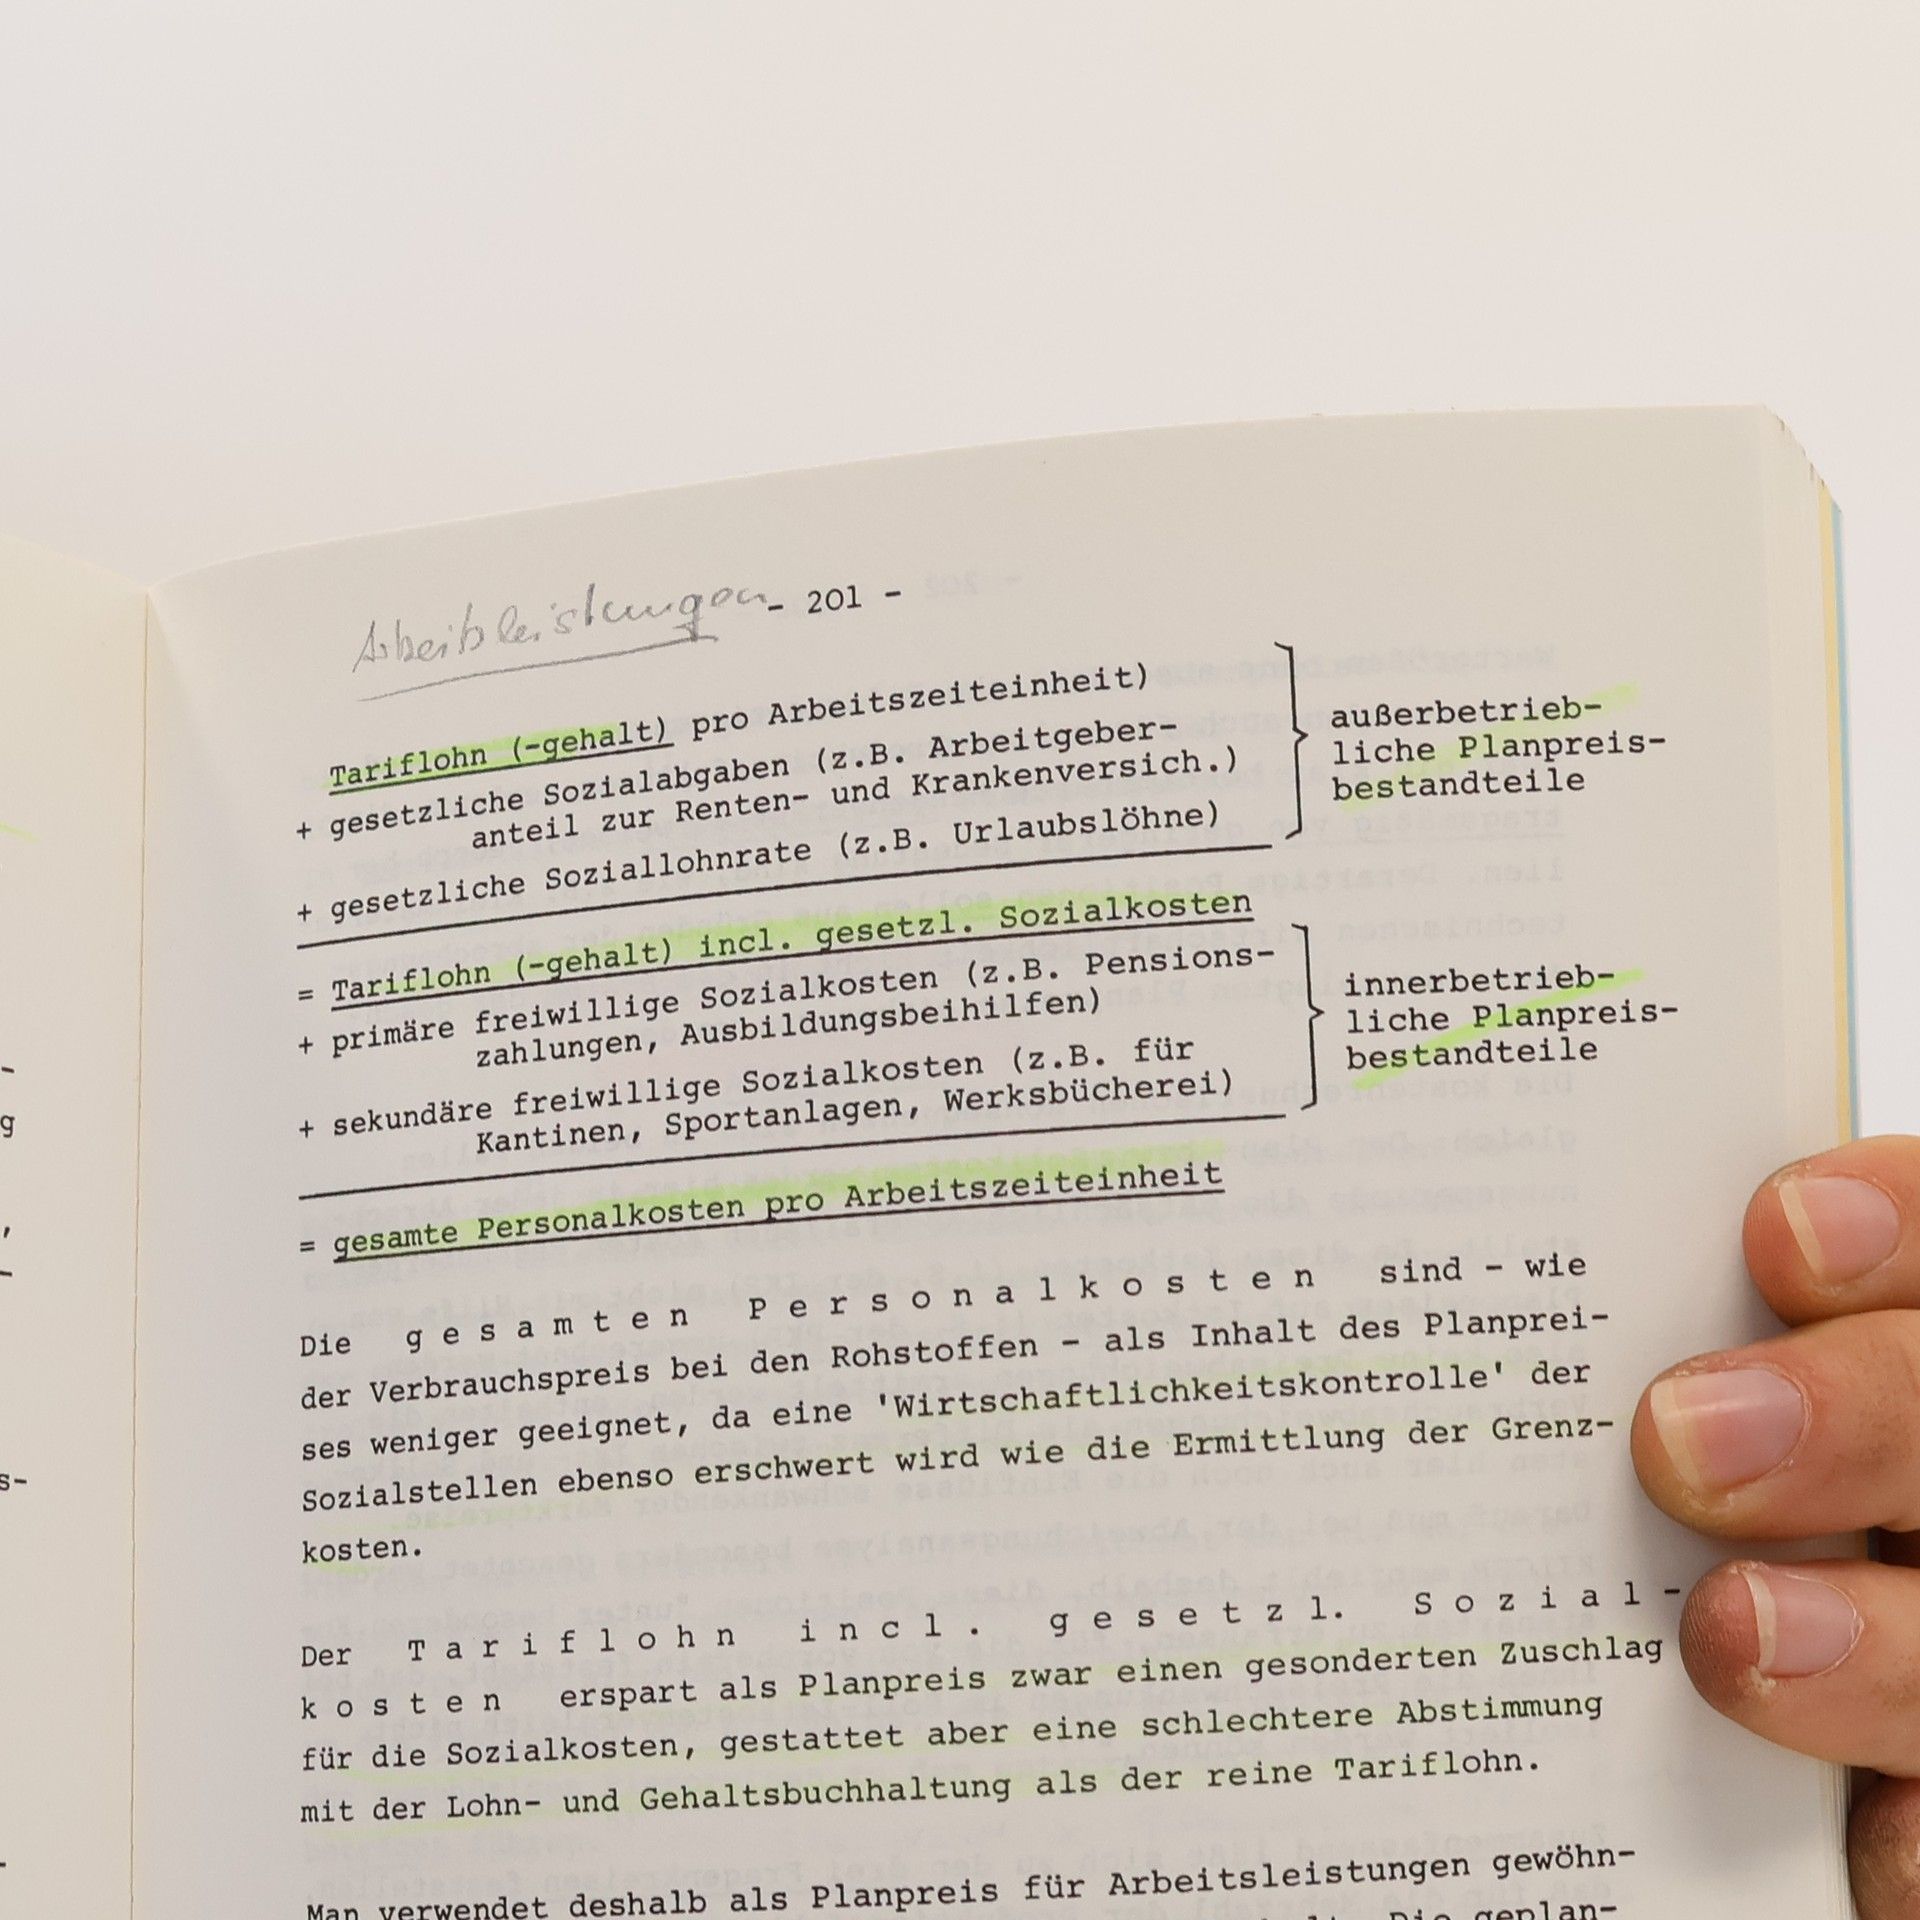 Arbeitsleistungen
- 201 -
Tariflohn (-gehalt) pro Arbeitszeiteinheit)
+ gesetzliche Sozialabgaben (z.B. Arbeitgeber-
anteil zur Renten- und Krankenversich.)
+ gesetzliche Soziallohnrate (z.B. Urlaubslöhne)
außerbetrieb-
liche Planpreis-
bestandteile
= Tariflohn (-gehalt) incl. gesetzl. Sozialkosten
+ primäre freiwillige Sozialkosten (z.B. Pensions-
zahlungen, Ausbildungsbeihilfen)
+ sekundäre freiwillige Sozialkosten (z.B. für
Kantinen, Sportanlagen, Werksbücherei)
innerbetrieb-
liche Planpreis-
bestandteile
= gesamte Personalkosten pro Arbeitszeiteinheit
Die gesamten Personalkosten sind - wie
der Verbrauchspreis bei den Rohstoffen - als Inhalt des Planprei-
ses weniger geeignet, da eine 'Wirtschaftlichkeitskontrolle' der
Sozialstellen ebenso erschwert wird wie die Ermittlung der Grenz-
kosten.
Der Tariflohn incl. gesetzl. Sozial-
kosten erspart als Planpreis zwar einen gesonderten Zuschlag
für die Sozialkosten, gestattet aber eine schlechtere Abstimmung
mit der Lohn- und Gehaltsbuchhaltung als der reine Tariflohn.
Man verwendet deshalb als Planpreis für Arbeitsleistungen gewöhn-
Die geplan-